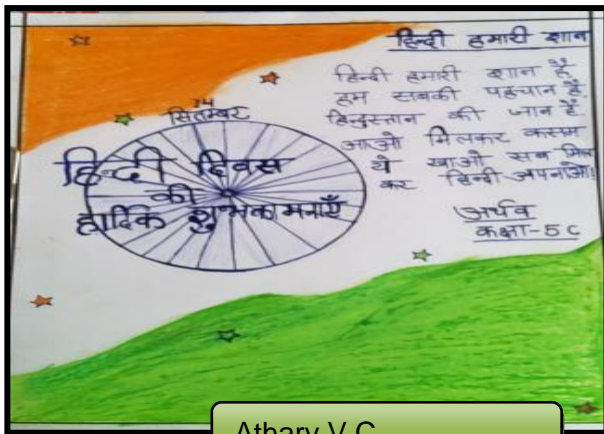 हिन्दी हमारी शान
हिन्दी हमारी शान है
हम सबकी पहचान है
हिन्दुस्तान की जान है
आओ मिलकर कसम
ये खाओ सब मिल
कर हिन्दी अपनाओ।
अर्थव
कक्षा-5C
14
सितम्बर
हिन्दी दिवस
की
हार्दिक शुभकामनाएँ
Atharv V C